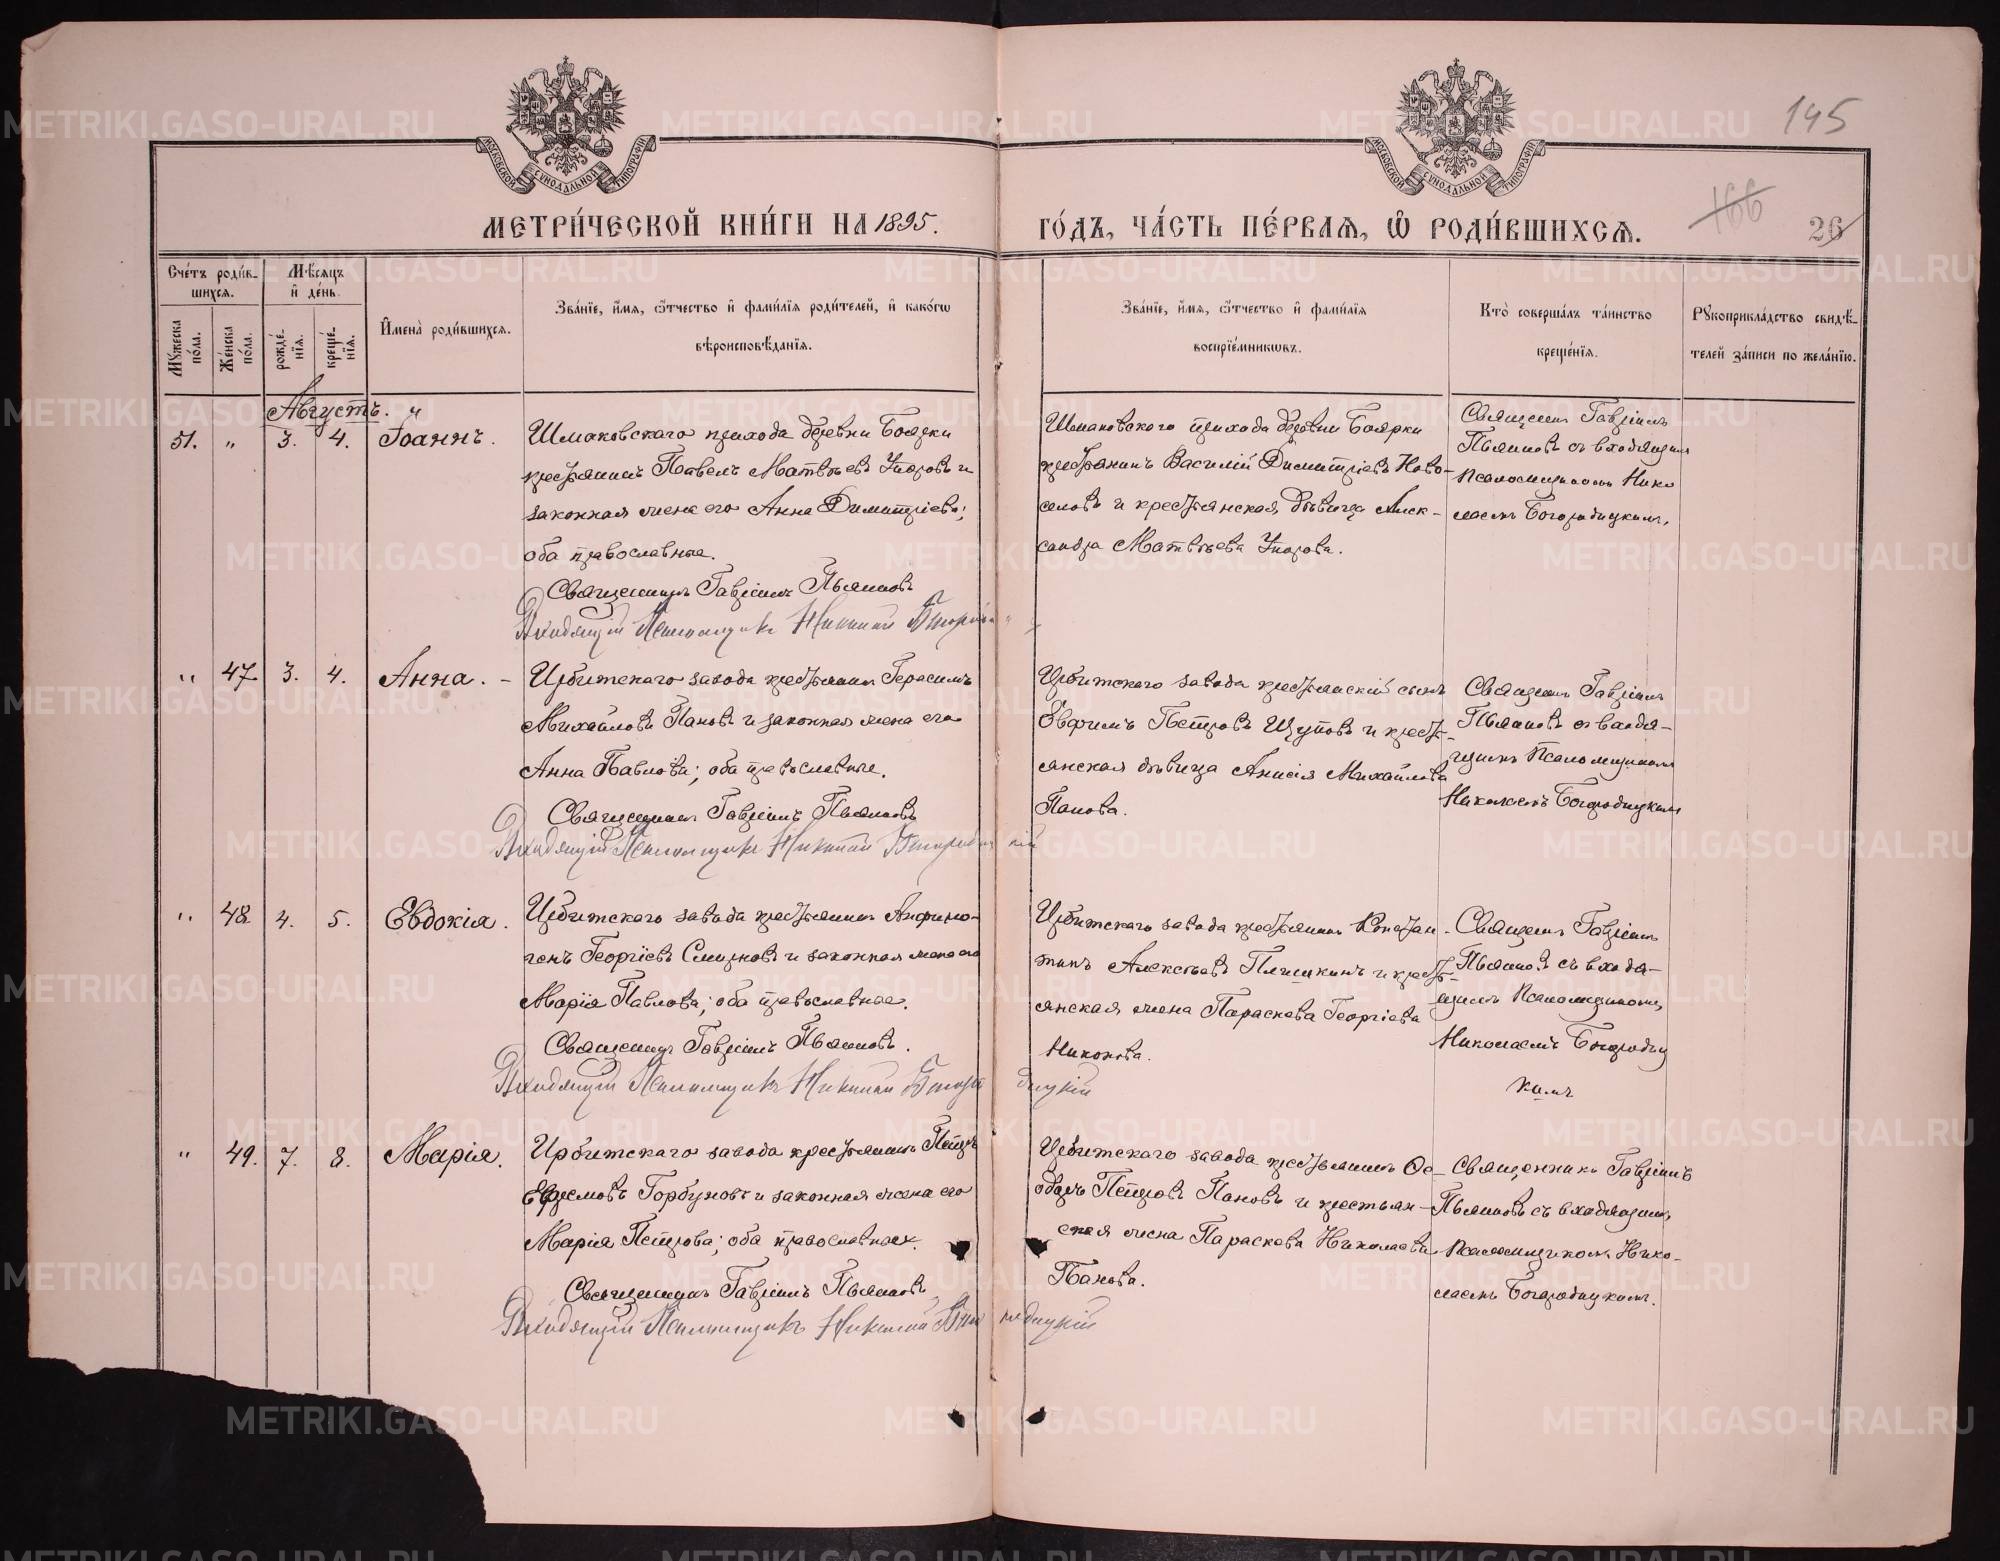 145
МОСКОВСКОЙ СѴНОДАЛЬНОЙ ТИПОГРАФІИ
МОСКОВСКОЙ СѴНОДАЛЬНОЙ ТИПОГРАФІИ
МЕТРИ́ЧЕСКОЙ КНИ́ГИ НА 1895.
ГО́ДЪ, ЧА́СТЬ ПЕ́РВАѦ, Ѡ҆ РОДИ́ВШИХСѦ.
166
26
Сче́тъ роди́в-
шихсѧ.
Мѣ́сѧцъ
и҆ де́нь.
И҆мена̀ роди́вшихсѧ.
Зва́нїе, и҆́мѧ, ѻ҆́тчество и҆ фами́лїѧ роди́телей, и҆ како́гѡ
вѣроисповѣ́данїѧ.
Зва́нїе, и҆́мѧ, ѻ҆́тчество и҆ фами́лїѧ
воспрїе́мникѡвъ.
Кто̀ соверша́лъ та́инство
креще́нїѧ.
Рꙋкоприкла́дство свидѣ́-
телей за́писи по жела́нїю.
Мꙋ́жеска
по́ла.
Же́нска
по́ла.
рожде́-
нїѧ.
креще́-
нїѧ.
Августъ.
51. " 3. 4. Іоаннъ.
Шмаковскаго прихода деревни Боярки
крестьянинъ Павелъ Матвѣевъ Упоровъ и
законная жена его Анна Димитріева;
оба православные.
Священникъ Гавріилъ Пьянковъ
Входящій Псаломщикъ Николай
Шмаковскаго прихода деревни Боярки
крестьянинъ Василій Димитріевъ Ново-
селовъ и крестьянская дѣвица Алек-
сандра Матвѣева Упорова.
Священникъ Гавріилъ
Пьянковъ съ входящимъ
Псаломщикомъ Нико
лаемъ Богородицкимъ,
" 47. 3. 4. Анна. -
Ирбитскаго завода крестьянинъ Герасимъ
Михайловъ Пановъ и законная жена его
Анна Павлова; оба православные.
Священникъ Гавріилъ Пьянковъ
Входящій Псаломщикъ Николай Богородицкій
Ирбитскаго завода крестьянскій сынъ
Евфимъ Петровъ Щуповъ и крест-
янская дѣвица Анисія Михайлова
Панова.
Священникъ Гавріилъ
Пьянковъ съ входя-
щимъ Псаломщикомъ
Николаемъ Богородицкимъ
" 48. 4. 5. Евдокія.
Ирбитскаго завода крестьянинъ Анфино-
генъ Георгіевъ Смирновъ и законная жена его
Марія Павлова; оба православные.
Священникъ Гавріилъ Пьянковъ.
Входящій Псаломщикъ Николай Богородицкій
Ирбитскаго завода крестьянинъ Констан-
тинъ Алексѣевъ Плишкинъ и крест-
янская жена Параскева Георгіева
Никонова.
Священникъ Гавріилъ
Пьянковъ съ входя-
щимъ Псаломщикомъ
Николаемъ Богородиц
кимъ
" 49. 7. 8. Марія.
Ирбитскаго завода крестьянинъ Петръ
Ефремовъ Горбуновъ и законная жена его
Марія Петрова; оба православные.
Священникъ Гавріилъ Пьянковъ
Входящій Псаломщикъ Николай Богородицкій
Ирбитскаго завода крестьянинъ
Петровъ Пановъ и крестьян-
ская жена Параскева Николаева
Панова.
Священникъ Гавріилъ
Пьянковъ съ входящимъ
Псаломщикомъ Нико-
лаемъ Богородицкимъ.